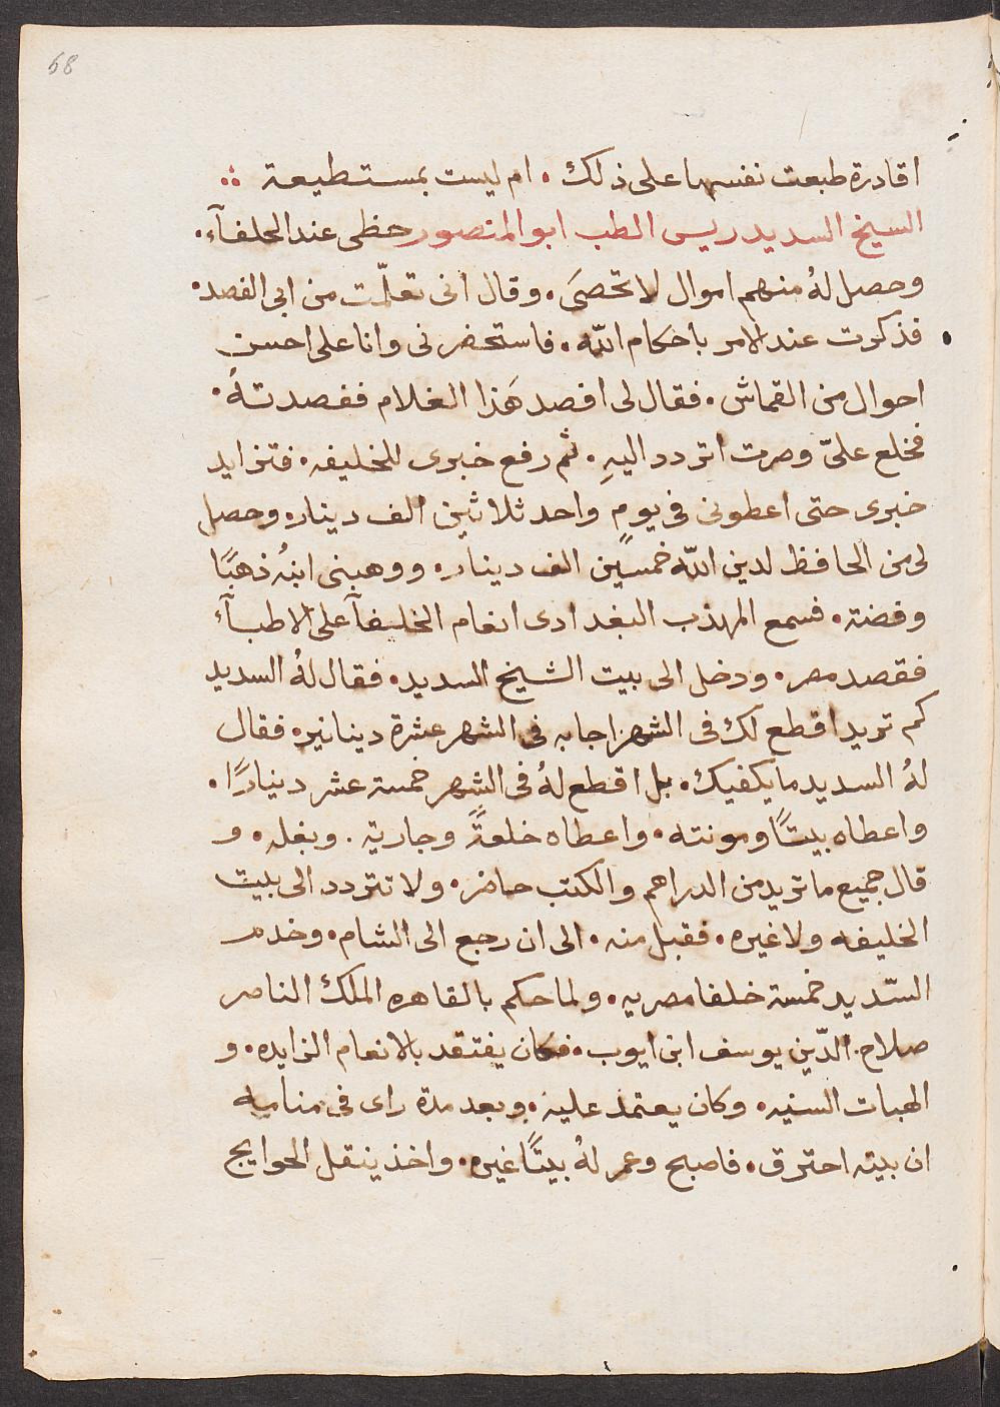 68
اقادرة طبعت نفسها على ذلك . ام ليست بمستطيعة ؞
السيخ السديد ريس الطب ابو المنصور حظى عند الخلفآء.
وحصل لهُ منهم اموال لا تحصَى. وقال انى تعلّمت من ابى الفصد.
فذكرت عند الامر باحكام اللّه. فاستحضرنى وانا على احسن
احوال من القماش. فقال لى افصد هَذا الغلام ففصدتهُ.
فخلع علىّ وصرت اتردد اليهِ. ثم رفع خبرى للخليفه. فتزايد
خبرى حتى اعطونى فى يومٍ واحد ثلاثين الف دينار. وحصل
لى من الحافظ لدين اللّه خمسين الف دينار. ووهبنى ابنهُ ذهبًا
وفضته. فسمع المهذب البغدادى انعام الخليفآ على الاطبآء
فقصد مصر. ودخل الى بيت الشيخ السديد. فقال لهُ السديد
كم تريد اقطع لك فى الشهر اجابه فى الشهر عشرة دينانير. فقال
لهُ السديد ما يكفيك. بل اقطع لهُ فى الشهر خمسة عشر دينارًا.
واعطاه بيتًا ومونته. واعطاه خلعةً وجارية. وبغله. و
قال جميع ما تريد من الدراهم والكتب حاضر. ولا تتردد الى بيت
الخليفه ولا غيره. فقبل منه. الى ان رجع الى الشام. وخدم
السّديد خمسة خلفا مصريه. ولما حكم بالقاهره الملك الناصر
صلاح الدّين يوسف ابن ايوب. فكان يفتقد بالانعام الزايده. و
الهبات السنيه. وكان يعتمد عليه. وبعد مدة راى فى منامه
ان بيته احترق. فاصبح وعمر لهُ بيتًا غيره. واخذ ينقل الحوايج